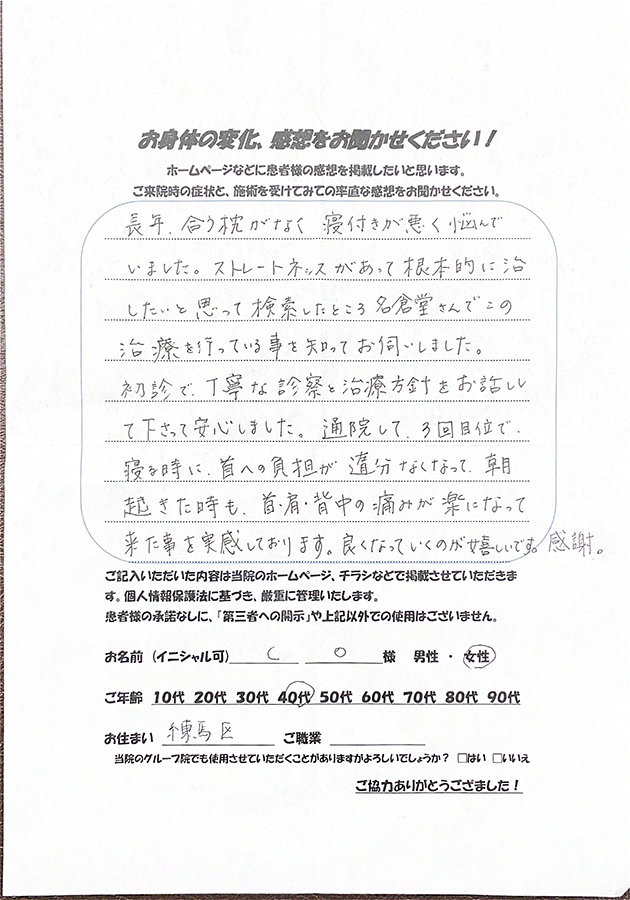 お身体の変化、感想をお聞かせください！
ホームページなどに患者様の感想を掲載したいと思います。
ご来院時の症状と、施術を受けてみての率直な感想をお聞かせください。
長年、合う枕がなく 寝付きが悪く悩んで
いました。ストレートネックがあって根本的に治
したいと思って検索したところ名倉堂さんでこの
治療を行っている事を知ってお伺いしました。
初診で、丁寧な診察と治療方針をお話しし
て下さって安心しました。通院して、3回目位で、
寝る時に、首への負担が 随分なくなって、朝
起きた時も、首・肩・背中の痛みが楽になって
来た事を実感しております。良くなっていくのが嬉しいです。感謝。
ご記入いただいた内容は当院のホームページ、チラシなどで掲載させていただきま
す。個人情報保護法に基づき、厳重に管理いたします。
患者様の承諾なしに、「第三者への開示」や上記以外での使用はございません。
お名前（イニシャル可） C O 様 男性 ・ 女性
ご年齢 10代 20代 30代 40代 50代 60代 70代 80代 90代
お住まい 練馬区 ご職業
当院のグループ院でも使用させていただくことがありますがよろしいでしょうか？ □はい □いいえ
ご協力ありがとうござました！